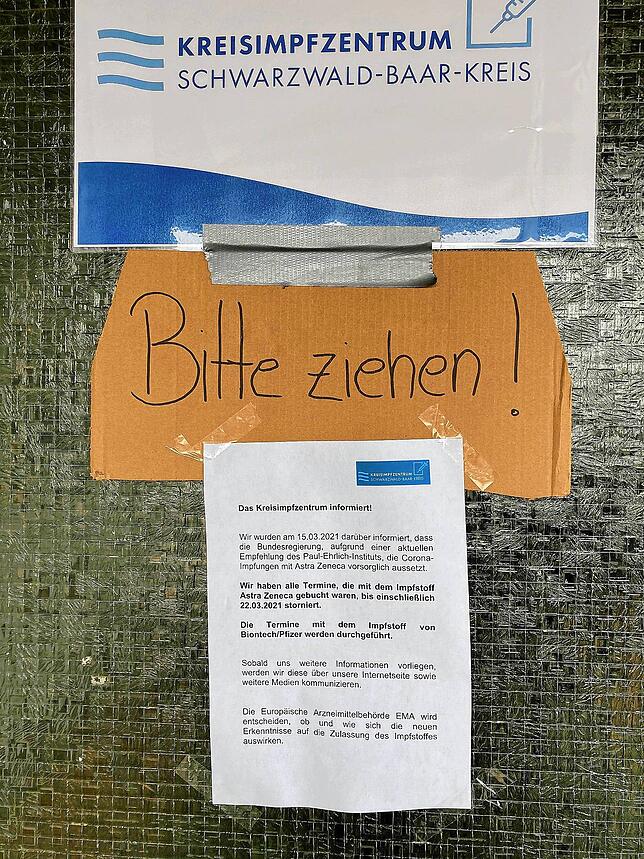 KREISIMPFZENTRUM
SCHWARZWALD-BAAR-KREIS
Bitte ziehen !
KREISIMPFZENTRUM
SCHWARZWALD-BAAR-KREIS
Das Kreisimpfzentrum informiert!
Wir wurden am 15.03.2021 darüber informiert, dass
die Bundesregierung, aufgrund einer aktuellen
Empfehlung des Paul-Ehrlich-Instituts, die Corona-
Impfungen mit Astra Zeneca vorsorglich aussetzt.
Wir haben alle Termine, die mit dem Impfstoff
Astra Zeneca gebucht waren, bis einschließlich
22.03.2021 storniert.
Die Termine mit dem Impfstoff von
Biontech/Pfizer werden durchgeführt.
Sobald uns weitere Informationen vorliegen,
werden wir diese über unsere Internetseite sowie
weitere Medien kommunizieren.
Die Europäische Arzneimittelbehörde EMA wird
entscheiden, ob und wie sich die neuen
Erkenntnisse auf die Zulassung des Impfstoffes
auswirken.